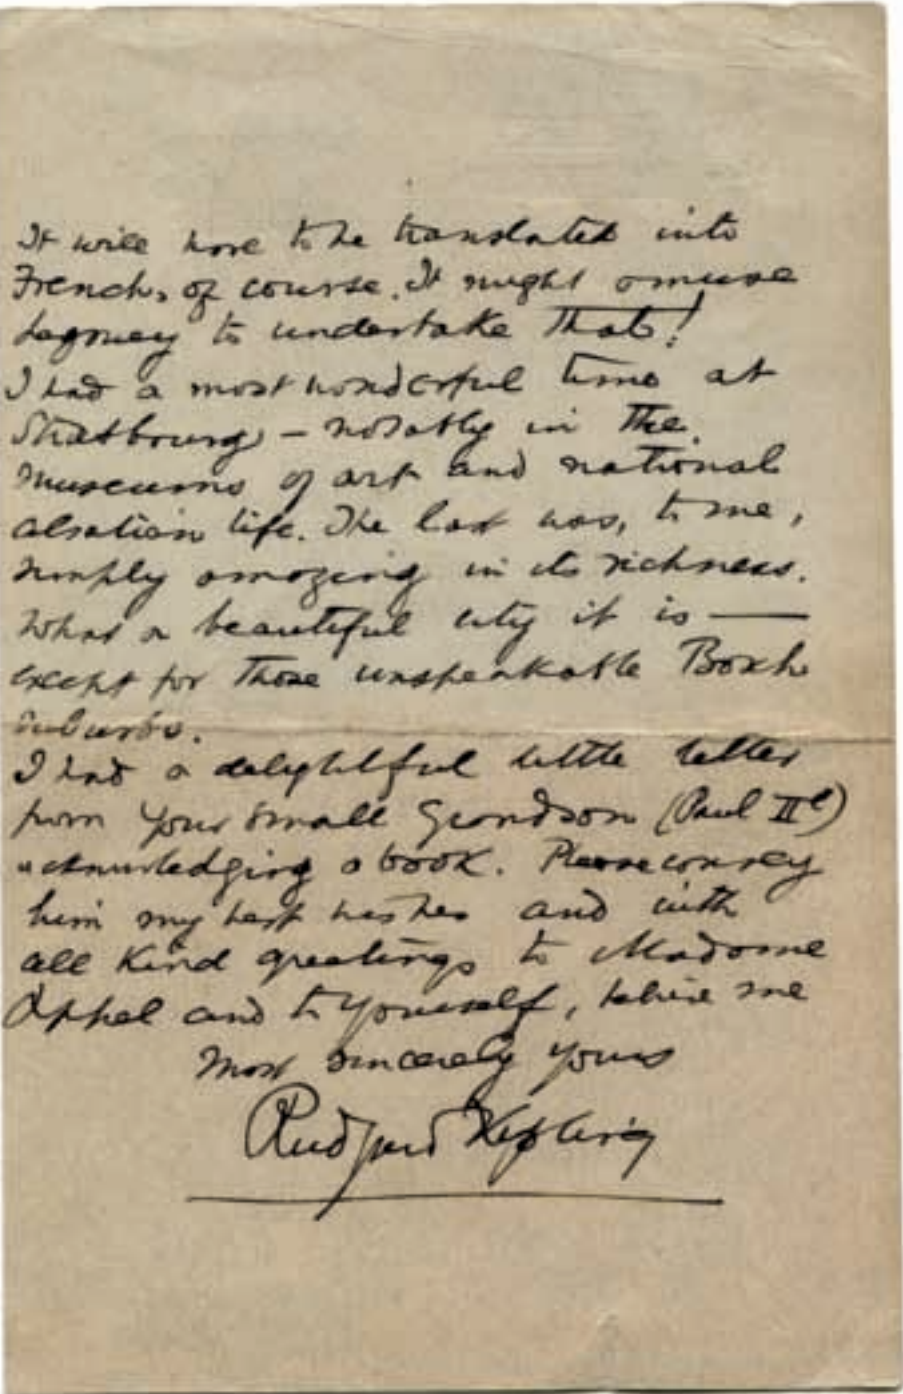 It will have to be translated into
French, of course. It might amuse
to undertake that!
I had a most wonderful time at
Strasbourg – notably in the
museums of art and national
alsatian life. The last was, to me,
simply amazing in its richness.
What a beautiful city it is —
except for those unspeakable Bosch
suburbs.
I had a delightful little letter
from your small Grandson (Paul II
acknowledging a book. Please convey
him my best wishes and with
all kind greetings to Madame
and to yourself, believe me
most sincerely yours
Rudyard Kipling